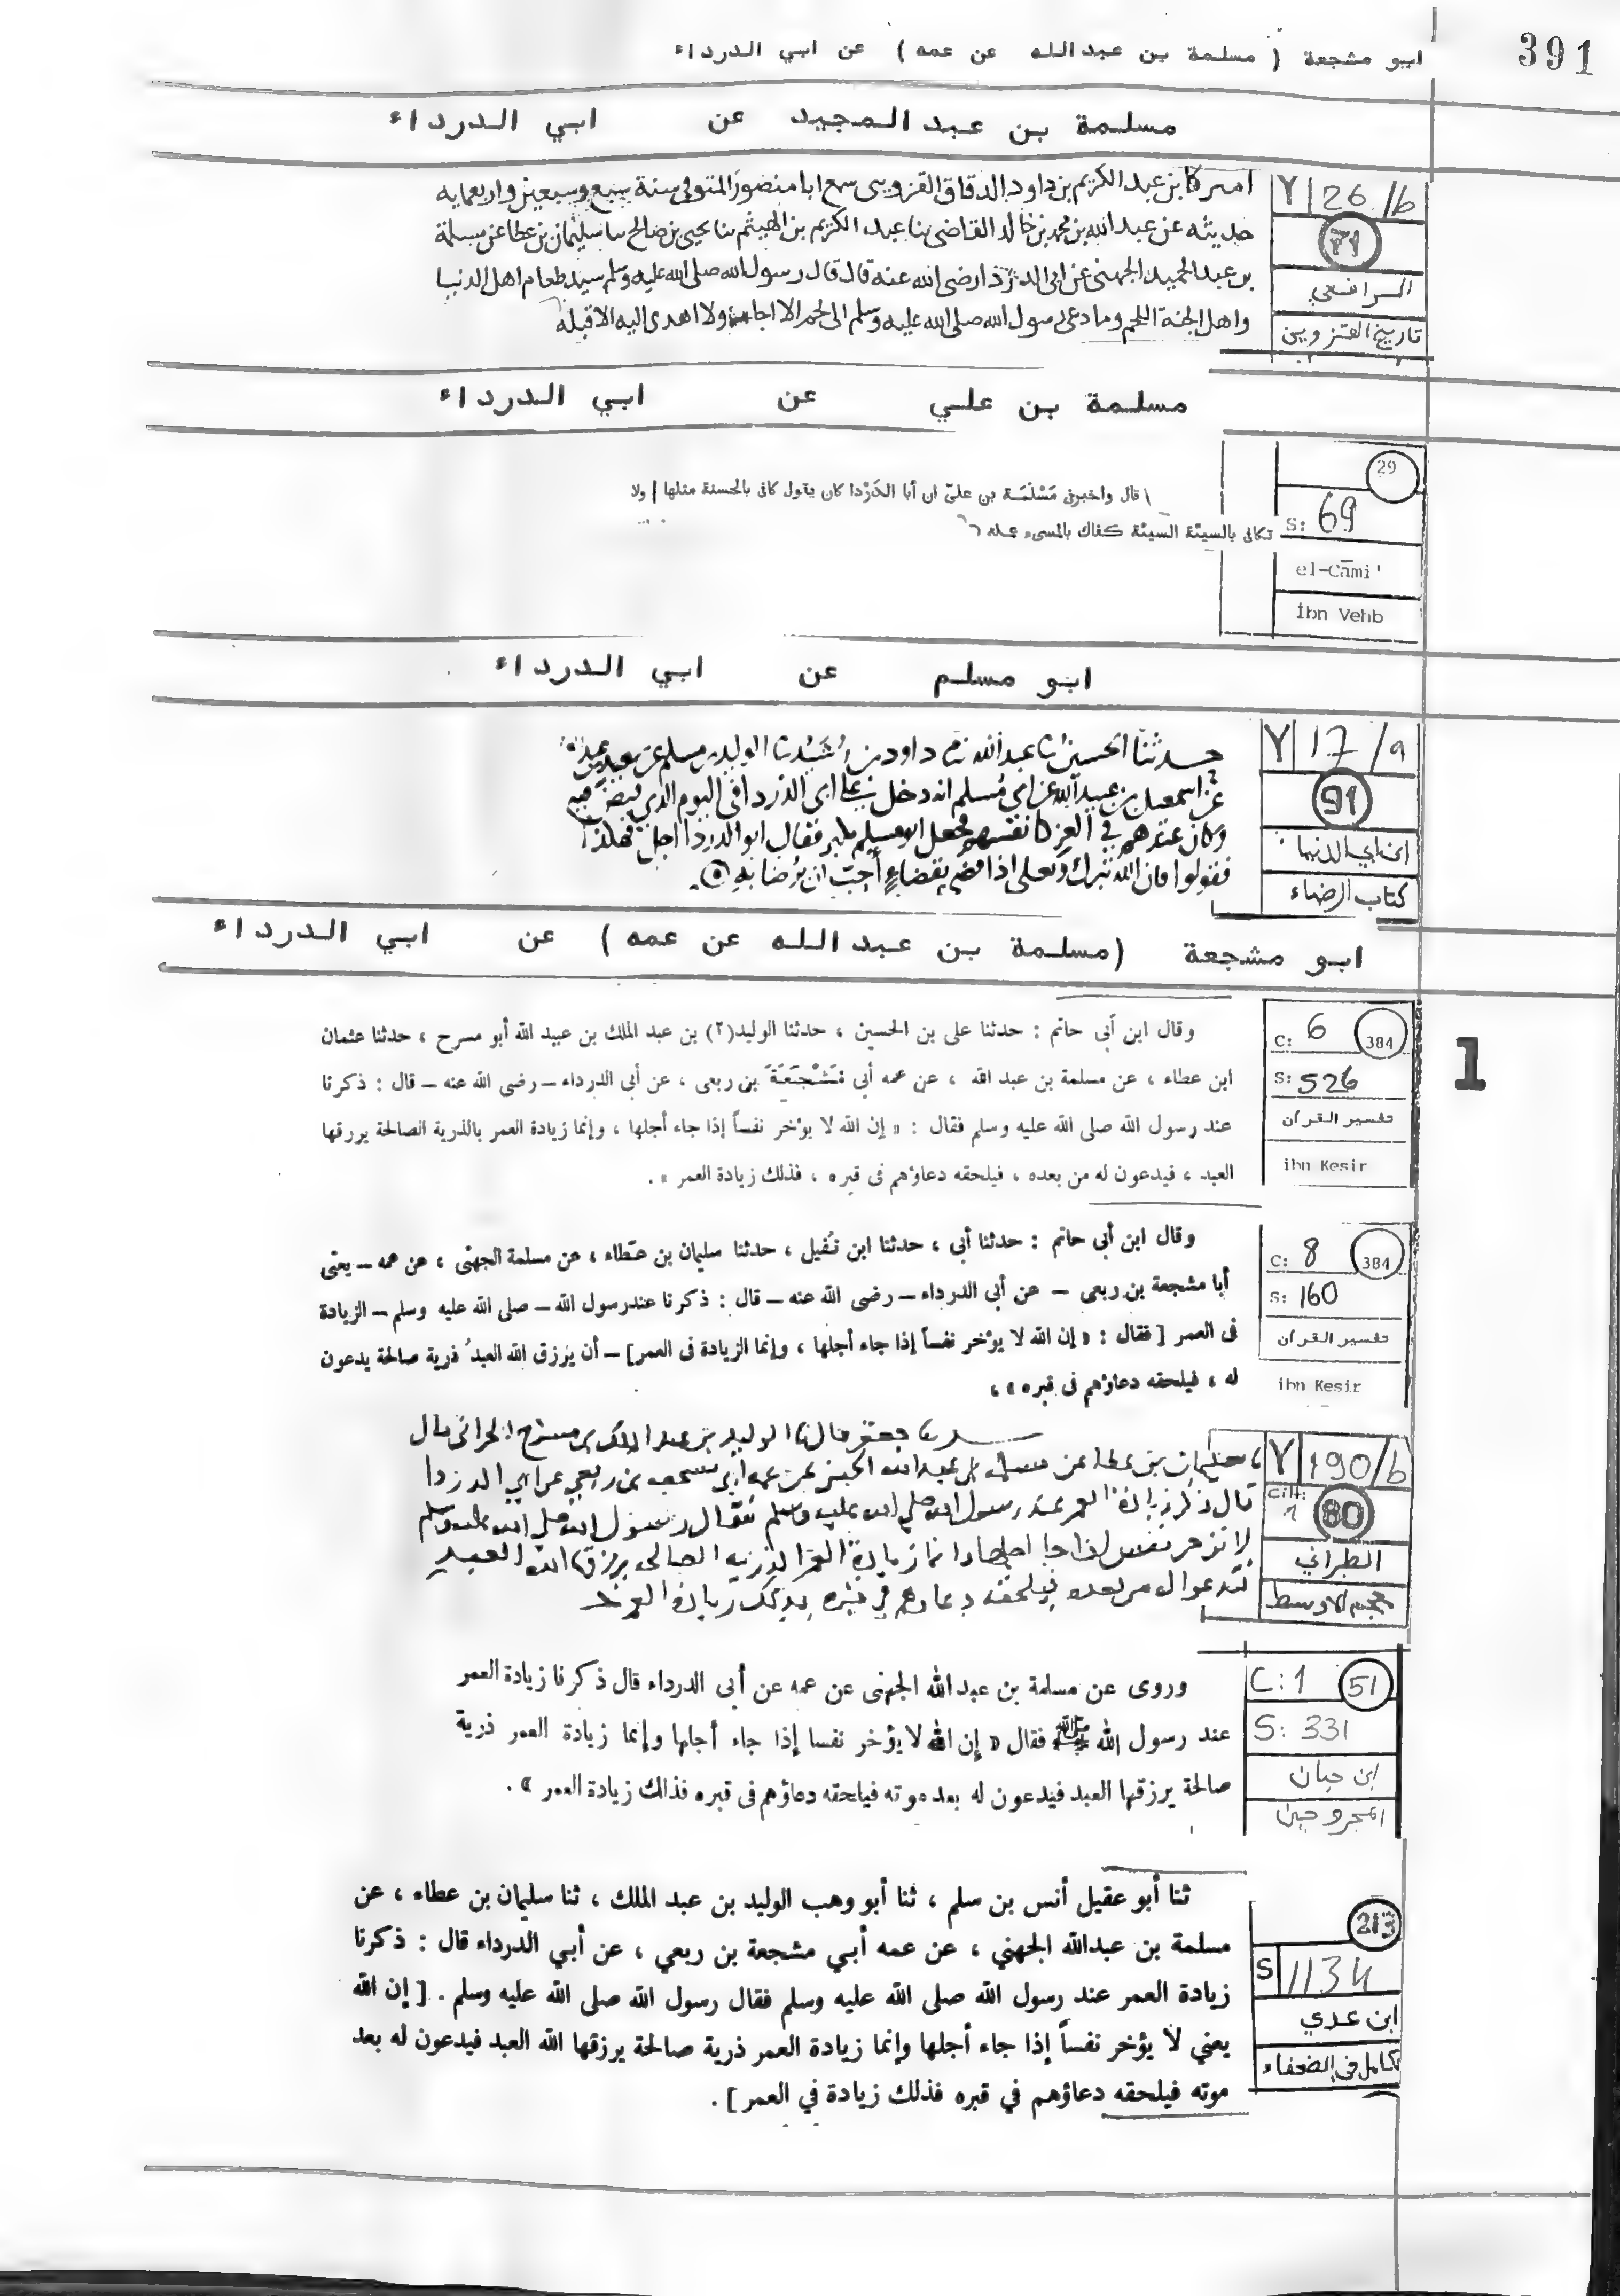 391
ابو مشجعة ( مسلمة بن عبدالله عن عمه ) عن ابي الدرداء
مسلمة بن عبد المجيد عن ابي الدرداء
Y 26/b
71
الرافعي
تاريخ القزوين
بن عبد الكريم بن داود الدقاق القزويني سمع ابا منصور المتوفى سنة سبع وسبعين واربعمايه
حديثه عن عبد الله بن محمد بن خالد القاضي بنا عبد الكريم بن الهيثم ثنا يحيى بن صالح سا سليمان بن عطا عن مسلمة
بن عبد الحميد الجهني عن ابى الدردا رضى الله عنه قال قال رسول الله صلى الله عليه وسلم سيد طعام اهل الدنيا
واهل الجنة اللحم وما دعى رسول الله صلى الله عليه وسلم الى لحم الا اجاب ولا اهدى اليه الا قبله
مسلمة بن علي عن ابي الدرداء
29
S: 69
el-Cāmi'
İbn Vehb
قال واخبرنى مَسْلَمَة بن علىّ ان أبا الدَرْدا كان يقول كافى بالحسنة مثلها | ولا
تكافى بالسيئة السيئة كفاك بالمسىء عمله
ابو مسلم عن ابي الدرداء
Y 17/a
91
ابن ابي الدنيا
كتاب الرضاء
حدثنا الحسين نا عبد الله داود بن رُشَيْد نا الوليد بن مسلم عن
عن اسمعيل بن عبيد الله عن ابي مُسلم انه دخل على ابى الدردا فى اليوم الذي قبض فيه
وكان عندهم في العز كانفسهم فجعل ابو مسلم يكبر فقال ابو الدردا اجل فهكذا
فقولوا فان الله تبرك وتعلى اذا قضى بقضاءٍ أحبّ ان يُرضا به
ابو مشجعة (مسلمة بن عبدالله عن عمه) عن ابي الدرداء
1
C: 6 384
S: 526
تفسير القرآن
ibn Kesir
وقال ابن أبى حاتم : حدثنا على بن الحسين ، حدثنا الوليد(٢) بن عبد الملك بن عبيد الله أبو مسرح ، حدثنا عثمان
ابن عطاء ، عن مسلمة بن عبد الله ، عن عمه أبي مَشْجَعَة بن ربعى ، عن أبى الدرداء – رضى الله عنه – قال : ذكرنا
عند رسول الله صلى الله عليه وسلم فقال : « إن الله لا يؤخر نفساً إذا جاء أجلها ، وإنما زيادة العمر بالذرية الصالحة يرزقها
العبد ، فيدعون له من بعده ، فيلحقه دعاؤهم فى قبره ، فذلك زيادة العمر » .
C: 8 384
S: 160
تفسير القرآن
ibn Kesir
وقال ابن أبى حاتم : حدثنا أبى ، حدثنا ابن نُفيل ، حدثنا سليمان بن عطاء ، عن مسلمة الجهنى ، عن عمه – يعنى
أبا مشجعة بن ربعى – عن أبى الدرداء – رضى الله عنه – قال : ذكرنا عند رسول الله – صلى الله عليه وسلم – الزيادة
فى العمر [ فقال : « إن الله لا يؤخر نفساً إذا جاء أجلها ، وإنما الزيادة فى العمر] – أن يرزق الله العبدُ ذرية صالحة يدعون
له ، فيلحقه دعاؤهم فى قبره » ،
Y 190/b
Cilt: 1 80
الطبراني
معجم الاوسط
جعفر قال نا الوليد بن عبد الملك بن مسرح الحرانى قال
سليمان بن عطا عن مسلمة بن عبد الله الجهني عن عمه أبي مشجعة بن ربعي عن ابي الدردا
قال ذكر زيادة العمر عند رسول الله صلى الله عليه وسلم فقال رسول الله صلى الله عليه وسلم
لا تؤخر نفس اذا جا اجلها وانما زيادة العمر الذرية الصالحه يرزقها الله العبد
فتدعوا له من بعده فيلحقه دعاوهم في قبره فذلك زيادة العمر
C: 1 51
S: 331
ابن حبان
المجروحين
وروى عن مسلمة بن عبد الله الجهنى عن عمه عن أبى الدرداء قال ذكرنا زيادة العمر
عند رسول الله ﷺ فقال « إن الله لا يؤخر نفسا إذا جاء أجلها وإنما زيادة العمر ذرية
صالحة يرزقها العبد فيدعون له بعد موته فيلحقه دعاؤهم فى قبره فذالك زيادة العمر » .
213
S 1134
ابن عدي
كامل في الضعفاء
ثنا أبو عقيل أنس بن سلم ، ثنا أبو وهب الوليد بن عبد الملك ، ثنا سليمان بن عطاء ، عن
مسلمة بن عبدالله الجهني ، عن عمه أبي مشجعة بن ربعي ، عن أبي الدرداء قال : ذكرنا
زيادة العمر عند رسول الله صلى الله عليه وسلم فقال رسول الله صلى الله عليه وسلم . [ إن الله
يعني لا يؤخر نفساً إذا جاء أجلها وإنما زيادة العمر ذرية صالحة يرزقها الله العبد فيدعون له بعد
موته فيلحقه دعاؤهم في قبره فذلك زيادة في العمر ] .